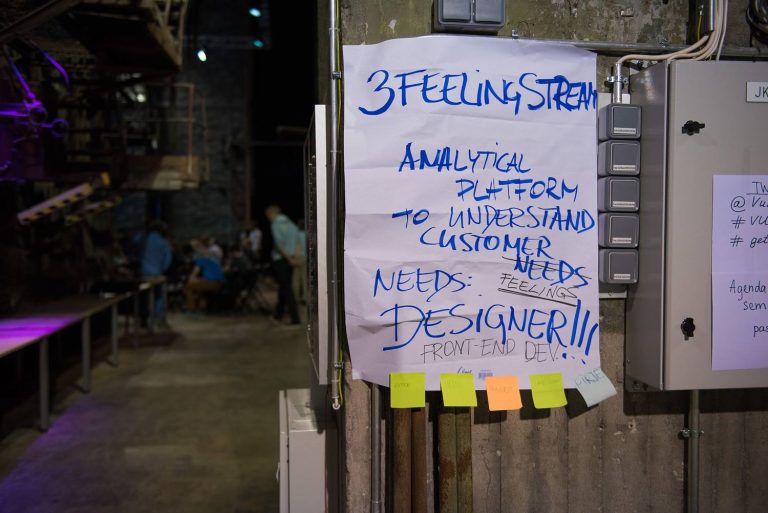 3 FEELING STREAM
ANALYTICAL
PLATFORM
TO UNDERSTAND
CUSTOMER
NEEDS
FEELINGS
NEEDS:
DESIGNER!!!
FRONT-END DEV.
JK
TW
@ Vu
# VU
# get
Agenda
sem
pas